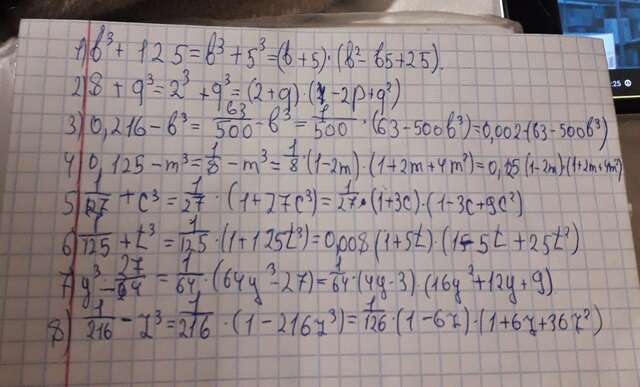 1) b³ + 125 = b³ + 5³ = (b + 5) · (b² - b5 + 25).
2) 8 + q³ = 2³ + q³ = (2 + q) · (4 - 2p + q²)
3) 0,216 - b³ = 63/500 - b³ = 1/500 · (63 - 500b³) = 0,002 · (63 - 500b³)
4) 0,125 - m³ = 1/8 - m³ = 1/8 · (1 - 2m) · (1 + 2m + 4m²) = 0,125 (1 - 2m) · (1 + 2m + 4m²)
5) 1/27 + c³ = 1/27 · (1 + 27c³) = 1/27 · (1 + 3c) · (1 - 3c + 9c²)
6) 1/125 + t³ = 1/125 · (1 + 125t³) = 0,008 (1 + 5t) · (1 - 5t + 25t²)
7) y³ - 27/64 = 1/64 · (64y³ - 27) = 1/64 · (4y - 3) · (16y² + 12y + 9)
8) 1/216 - z³ = 1/216 · (1 - 216z³) = 1/126 · (1 - 6z) · (1 + 6z + 36z²)